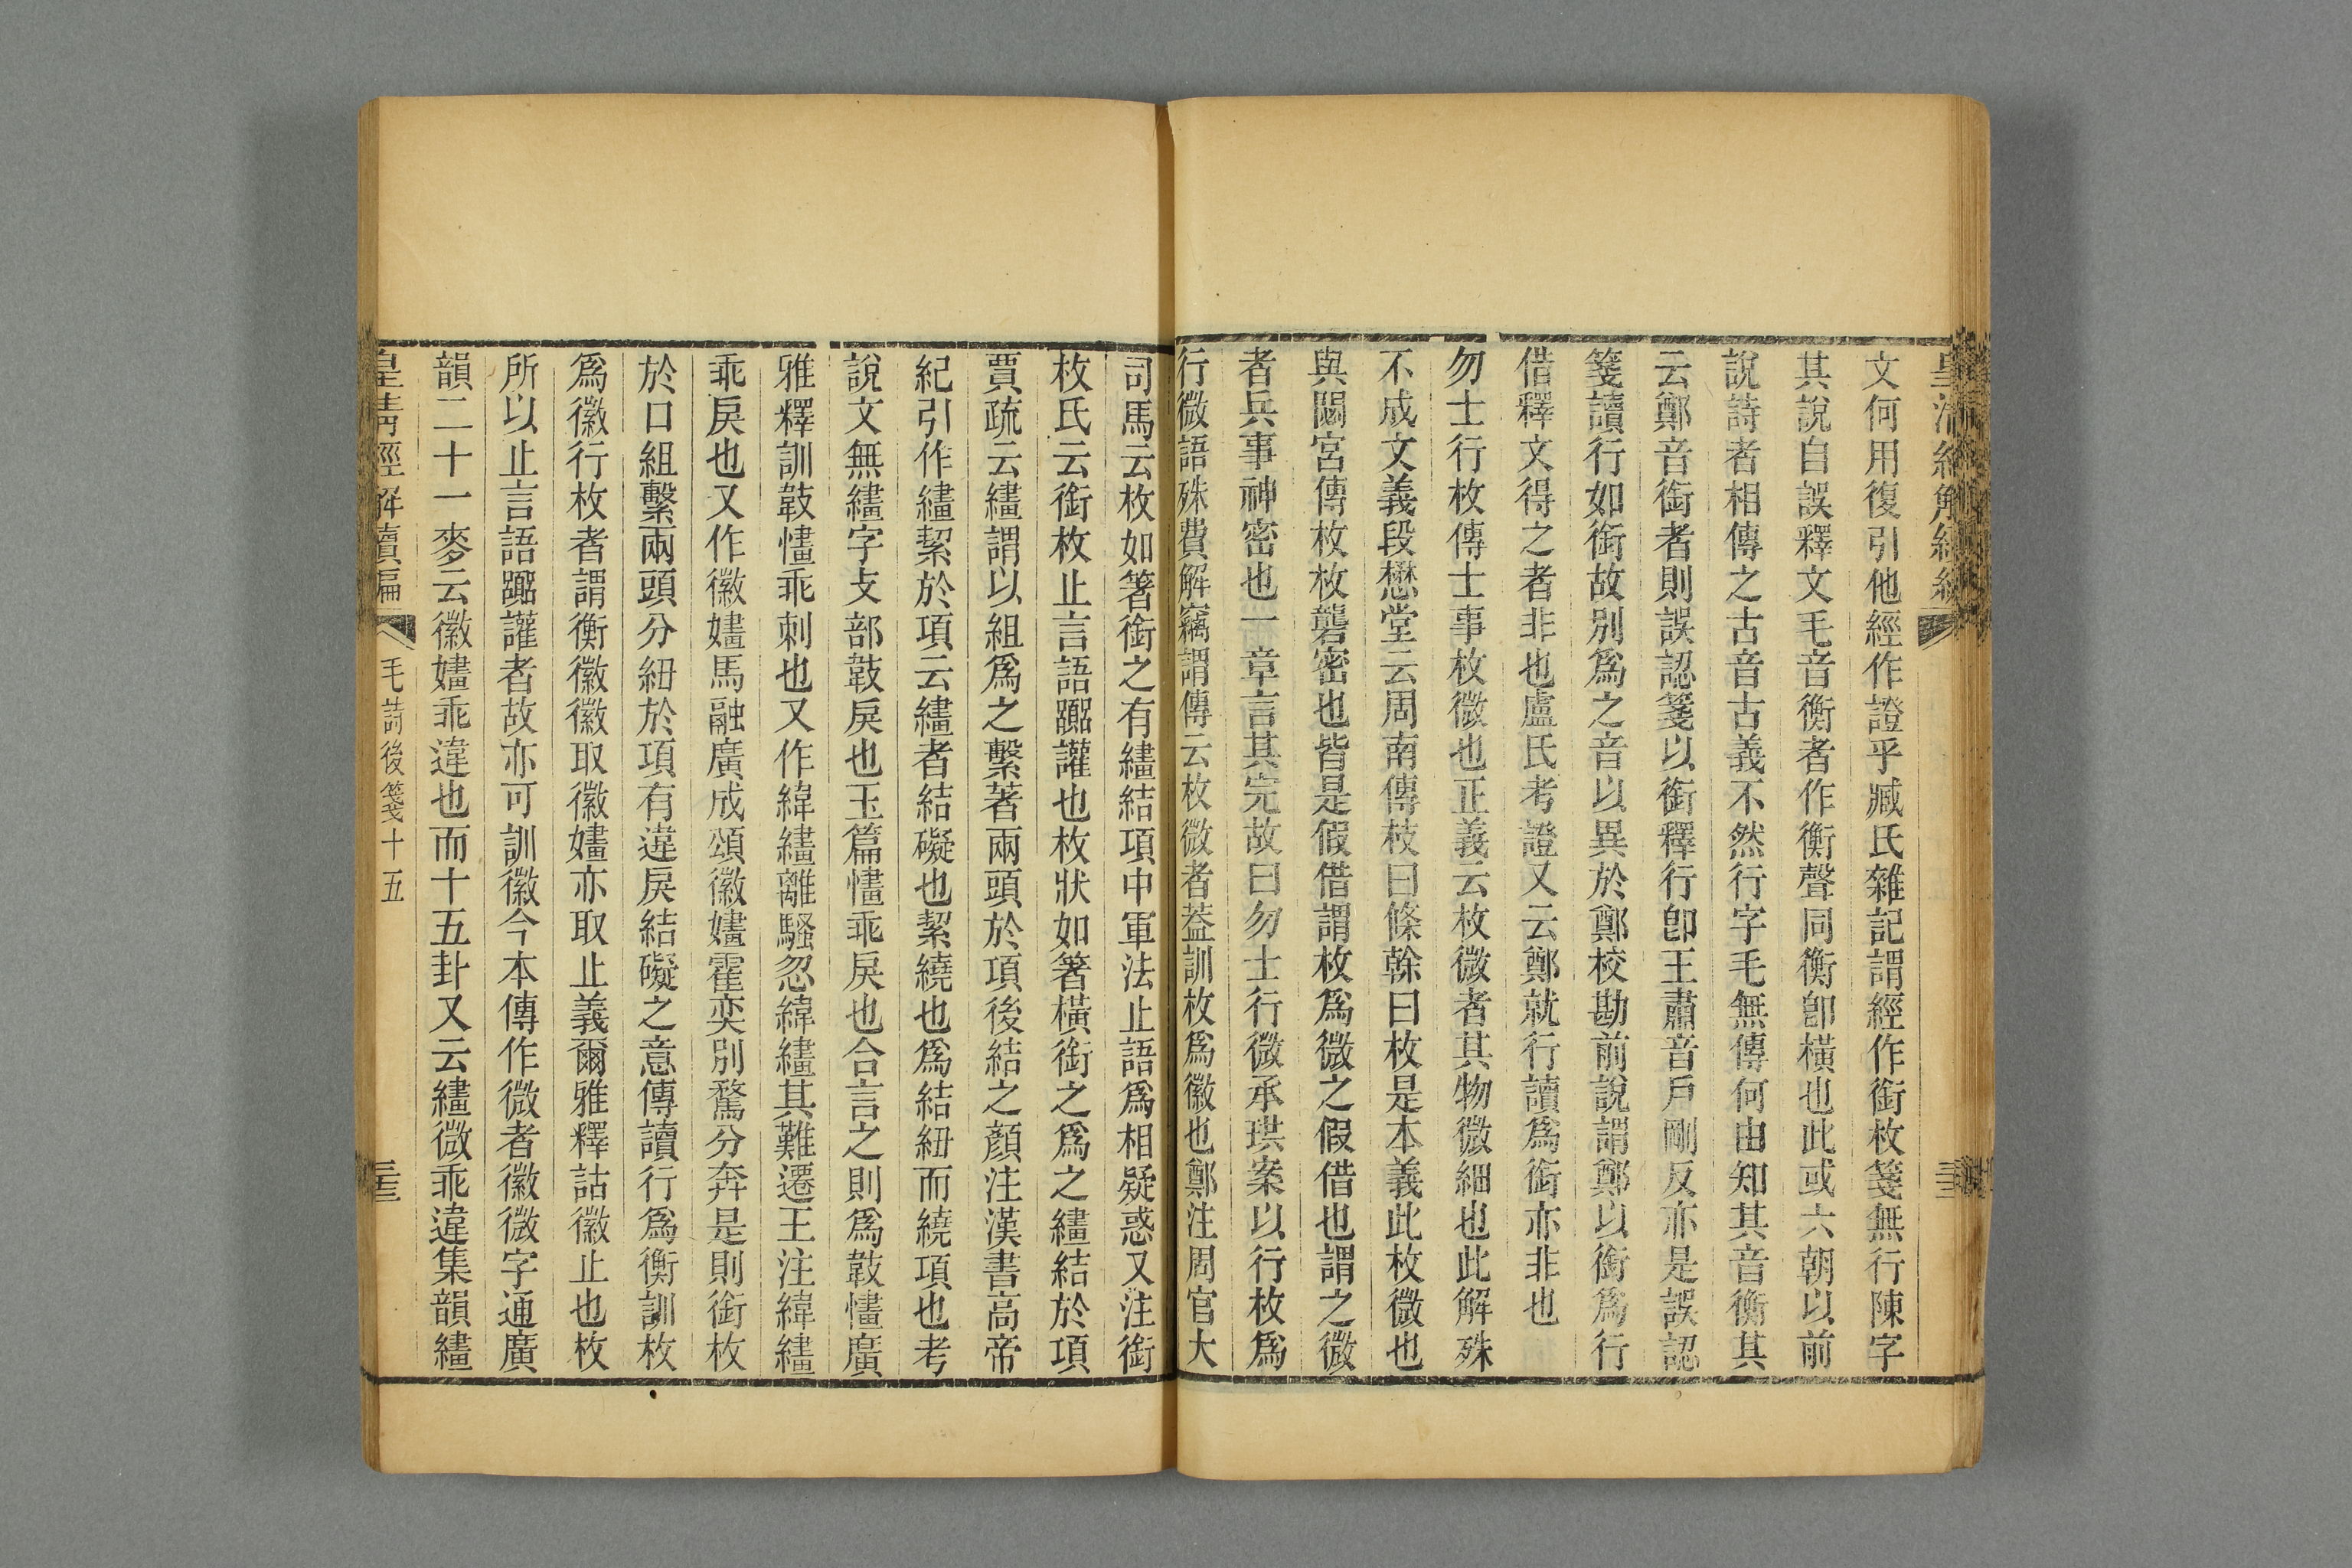 文何用復引他經作證乎臧氏雜記謂經作銜枚箋無行陳字
其說自誤釋文毛音衡者作衡聲同衡卽橫也此或六朝以前
說詩者相傳之古音古義不然行字毛無傳何由知其音衡其
云鄭音銜者則誤認箋以銜釋行卽王肅音戶剛反亦是誤認
箋讀行如銜故別爲之音以異於鄭校勘前說謂鄭以銜爲行
借釋文得之者非也盧氏考證又云鄭就行讀爲銜亦非也
勿士行枚傳士事枚微也正義云枚微者其物微細也此解殊
不成文義段懋堂云周南傳枝曰條榦曰枚是本義此枚微也
與閟宮傳枚枚礱密也皆是假借謂枚爲微之假借也謂之微
者兵事神密也一章言其完故曰勿士行微承珙案以行枚爲
行微語殊費解竊謂傳云枚微者蓋訓枚爲徽也鄭注周官大
司馬云枚如箸銜之有繣結項中軍法止語爲相疑惑又注銜
枚氏云銜枚止言語嘂讙也枚狀如箸橫銜之爲之繣結於項
賈疏云繣謂以組爲之繫著兩頭於項後結之顏注漢書高帝
紀引作繣絜於項云繣者結礙也絜繞也爲結紐而繞項也考
說文無繣字攴部㪏戾也玉篇㦎乖戾也合言之則爲㪏㦎廣
雅釋訓㪏㦎乖刺也又作緯繣離騷忽緯繣其難遷王注緯繣
乖戾也又作徽嫿馬融廣成頌徽嫿霍奕別騖分奔是則銜枚
於口組繫兩頭分紐於項有違戾結礙之意傳讀行爲衡訓枚
爲徽行枚者謂衡徽徽取徽嫿亦取止義爾雅釋詁徽止也枚
所以止言語嘂讙者故亦可訓徽今本傳作微者徽微字通廣
韻二十一麥云徽嫿乖違也而十五卦又云繣微乖違集韻繣
皇清經解續編
毛詩後箋十五